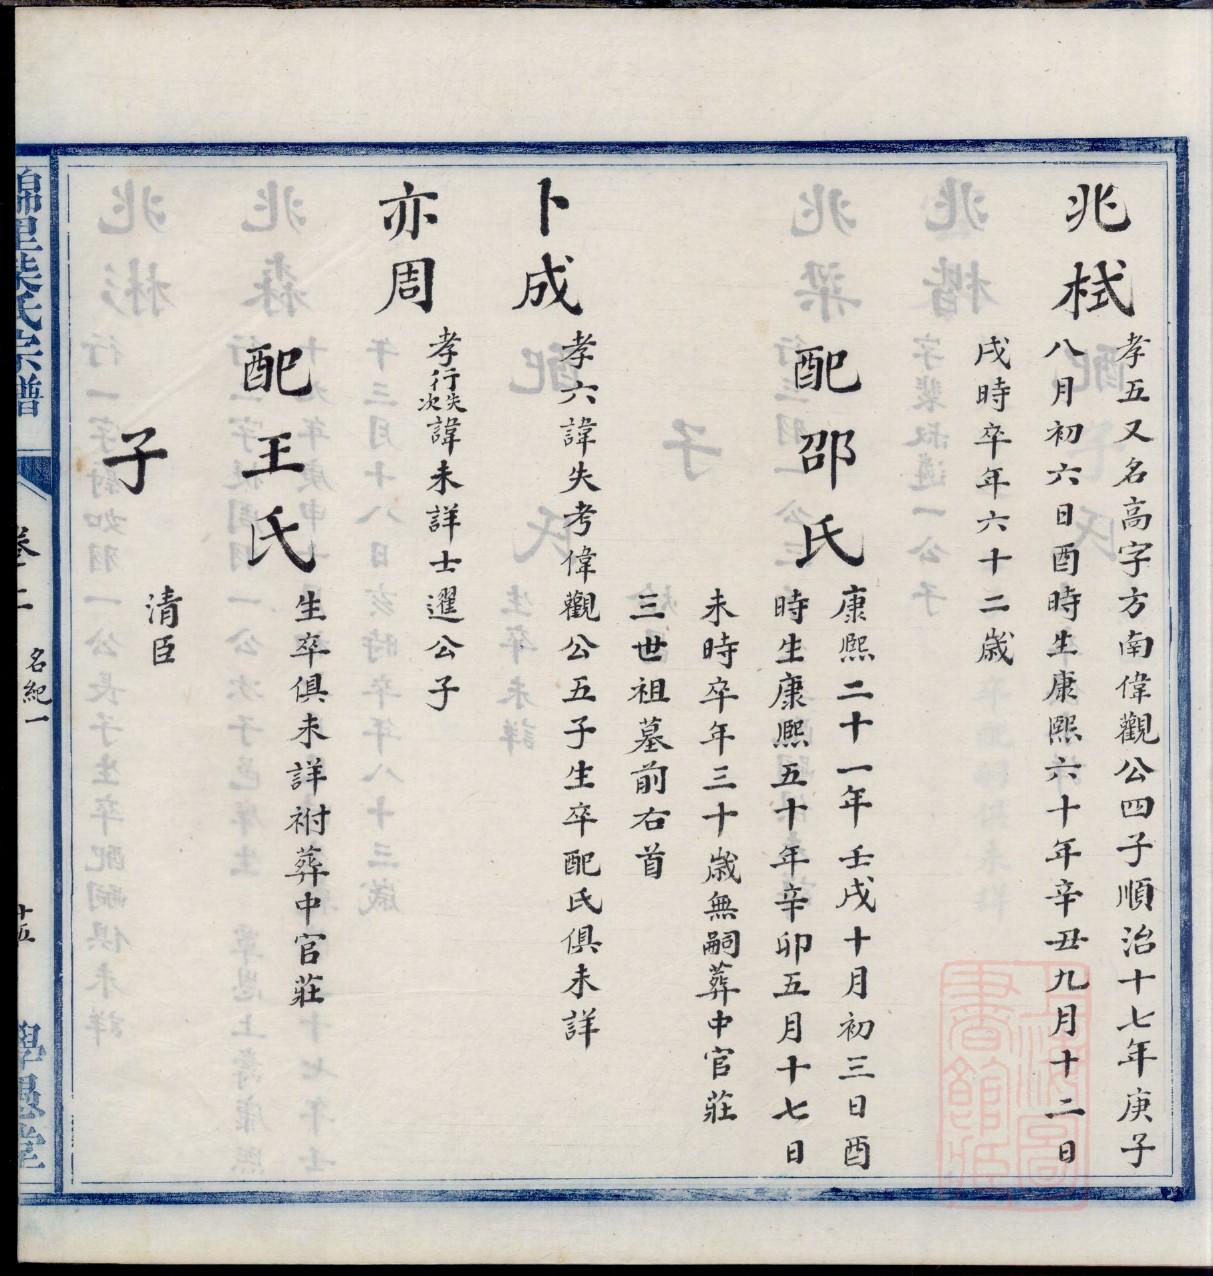 兆栻
孝五又名高字方南偉觀公四子順治十七年庚子
八月初六日酉時生康熙六十年辛丑九月十二日
戌時卒年六十二歲
配邵氏
康熙二十一年壬戌十月初三日酉
時生康熙五十年辛卯五月十七日
未時卒年三十歲無嗣葬中官莊
三世祖墓前右首
卜成
孝六諱失考偉觀公五子生卒配氏俱未詳
亦周
孝行次失諱未詳士暹公子
配王氏
生卒俱未詳祔葬中官莊
子
清臣
錦里柴氏宗譜
卷二
名紀一
十五